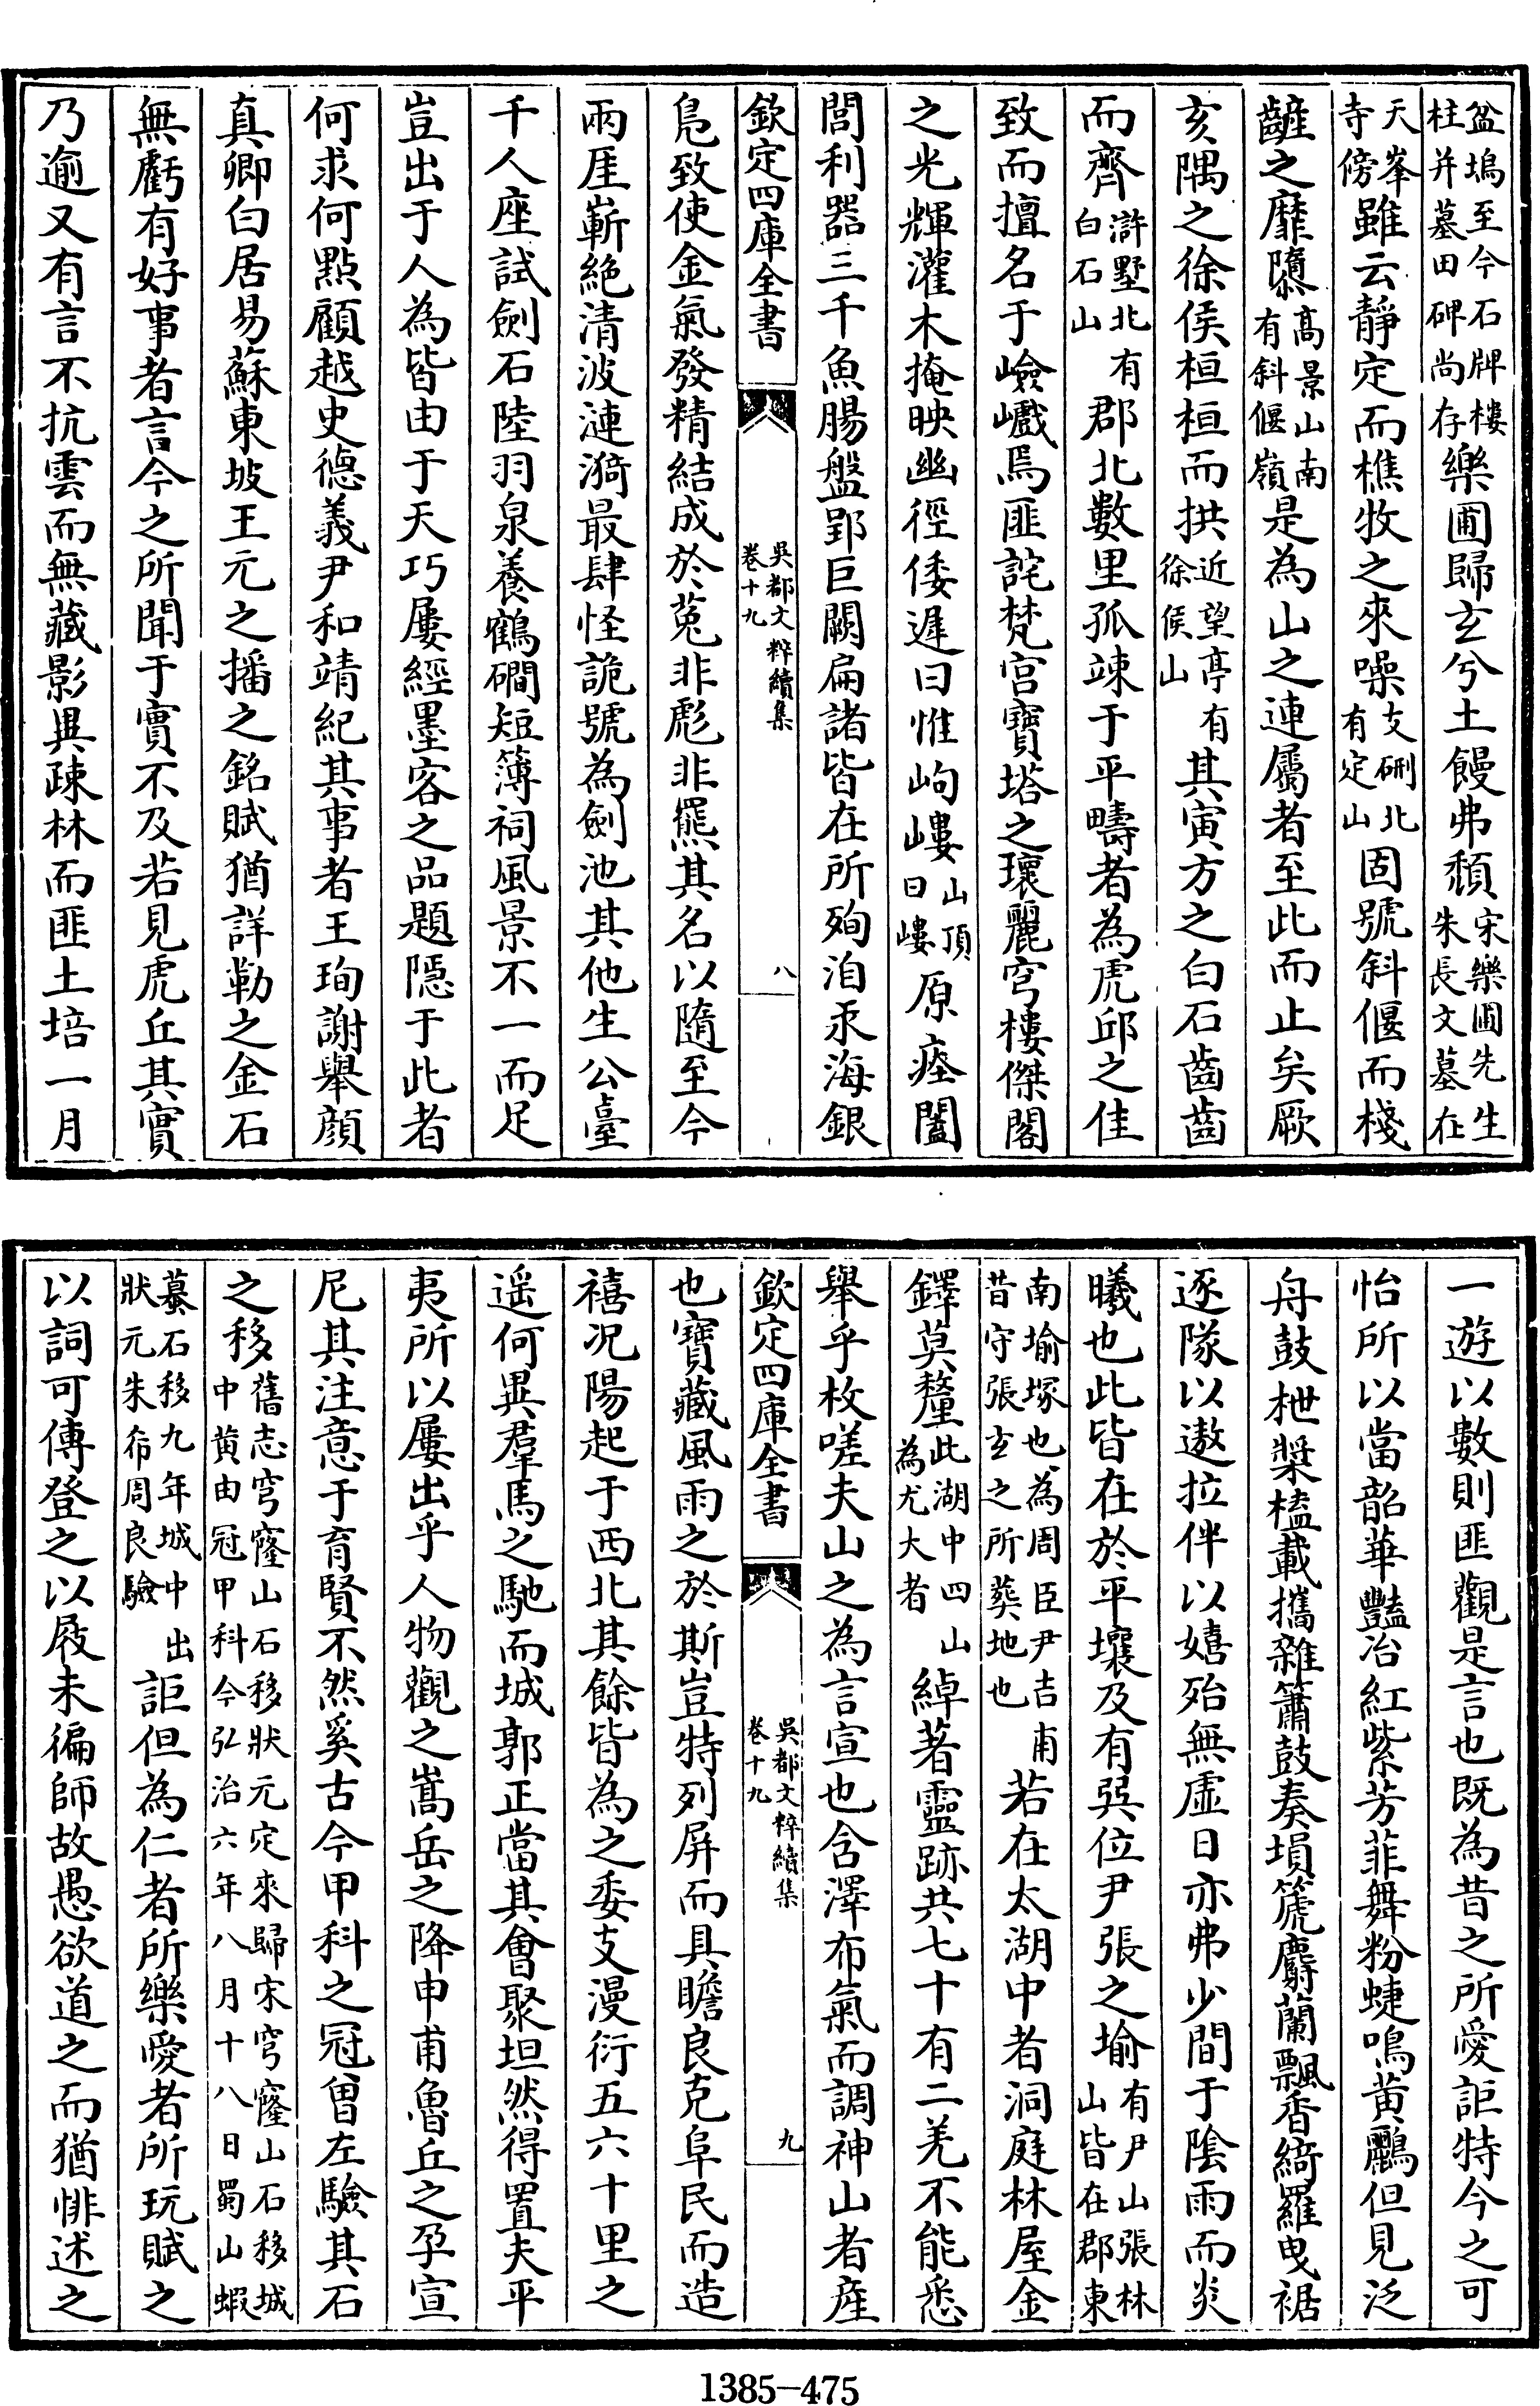 盆塢至今石牌樓柱并墓田碑尚存樂圃歸玄兮土饅弗頽宋樂圃先生朱長文墓在
天峯寺傍雖云靜定而樵牧之來噪支硎北有定山固號斜偃而棧
齴之靡隳高景山南有斜偃嶺是為山之連屬者至此而止矣厥
亥隅之徐侯桓桓而拱近望亭有徐侯山其寅方之白石齒齒
而齊滸墅北有白石山郡北數里孤竦于平疇者為虎邱之佳
致而擅名于嶮巇焉匪詫梵宫寶塔之瓌麗穹樓傑閣
之光輝灌木掩映幽徑倭遲曰惟岣嶁山頂曰嶁原瘞闔
閭利器三千魚腸盤郢巨闕扁諸皆在所殉洎汞海銀
欽定四庫全書 吳都文粹續集卷十九 八
鳬致使金氣發精結成於菟非彪非羆其名以隨至今
兩厓嶄絶清波漣漪最肆怪詭號為劍池其他生公臺
千人座試劍石陸羽泉養鶴磵短簿祠風景不一而足
豈出于人為皆由于天巧屢經墨客之品題隱于此者
何求何點顧越史德義尹和靖紀其事者王珣謝舉顔
真卿白居易蘇東坡王元之播之銘賦猶詳勒之金石
無虧有好事者言今之所聞于實不及若見虎丘其實
乃逾又有言不抗雲而無藏影異疎林而匪土培一月
一遊以數則匪觀是言也既為昔之所愛詎特今之可
怡所以當韶華豔冶紅紫芳菲舞粉蜨鳴黄鸝但見泛
舟鼓枻槳榼載攜雜簫鼓奏塤箎麝蘭飄香綺羅曳裾
逐隊以遨拉伴以嬉殆無虚日亦弗少間于陰雨而炎
曦也此皆在於平壤及有巽位尹張之堬有尹山張林山皆在郡東
南堬塚也為周臣尹吉甫昔守張玄之所葬地也若在太湖中者洞庭林屋金
鐸莫釐此湖中四山為尤大者綽著靈跡共七十有二羌不能悉
舉乎枚嗟夫山之為言宣也含澤布氣而調神山者産
欽定四庫全書 吳都文粹續集卷十九 九
也寶藏風雨之於斯豈特列屏而具瞻良克阜民而造
禧况陽起于西北其餘皆為之委支漫衍五六十里之
遥何異羣馬之馳而城郭正當其會聚坦然得置夫平
夷所以屢出乎人物觀之嵩岳之降申甫魯丘之孕宣
尼其注意于育賢不然奚古今甲科之冠曾左驗其石
之移舊志穹窿山石移狀元定來歸宋穹窿山石移城中黄由冠甲科今弘治六年八月十八日蜀山蝦
蟇石移九年城中出狀元朱希周良驗詎但為仁者所樂愛者所玩賦之
以詞可傳登之以屐未徧師故愚欲道之而猶悱述之
1385-475